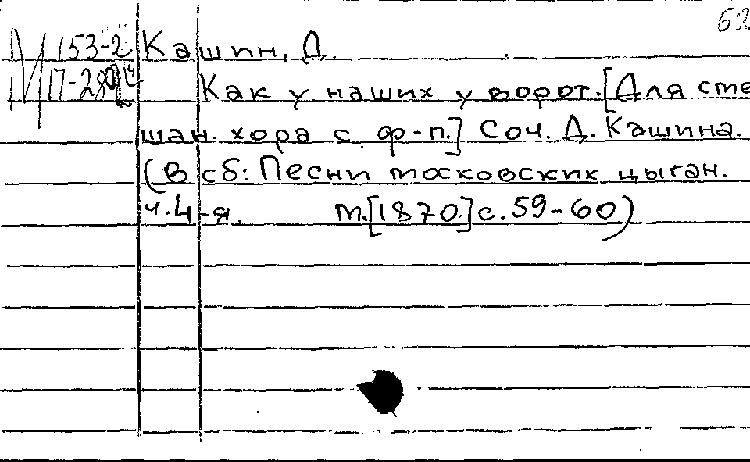 62
М 153-2 Кашин, Д.
17-28 Как у наших у ворот. [Для сме
шан. хора с ф-п.] Соч. Д. Кашина.
(В сб: Песни московских цыган.
ч.4-я. М.[1870] с.59-60)